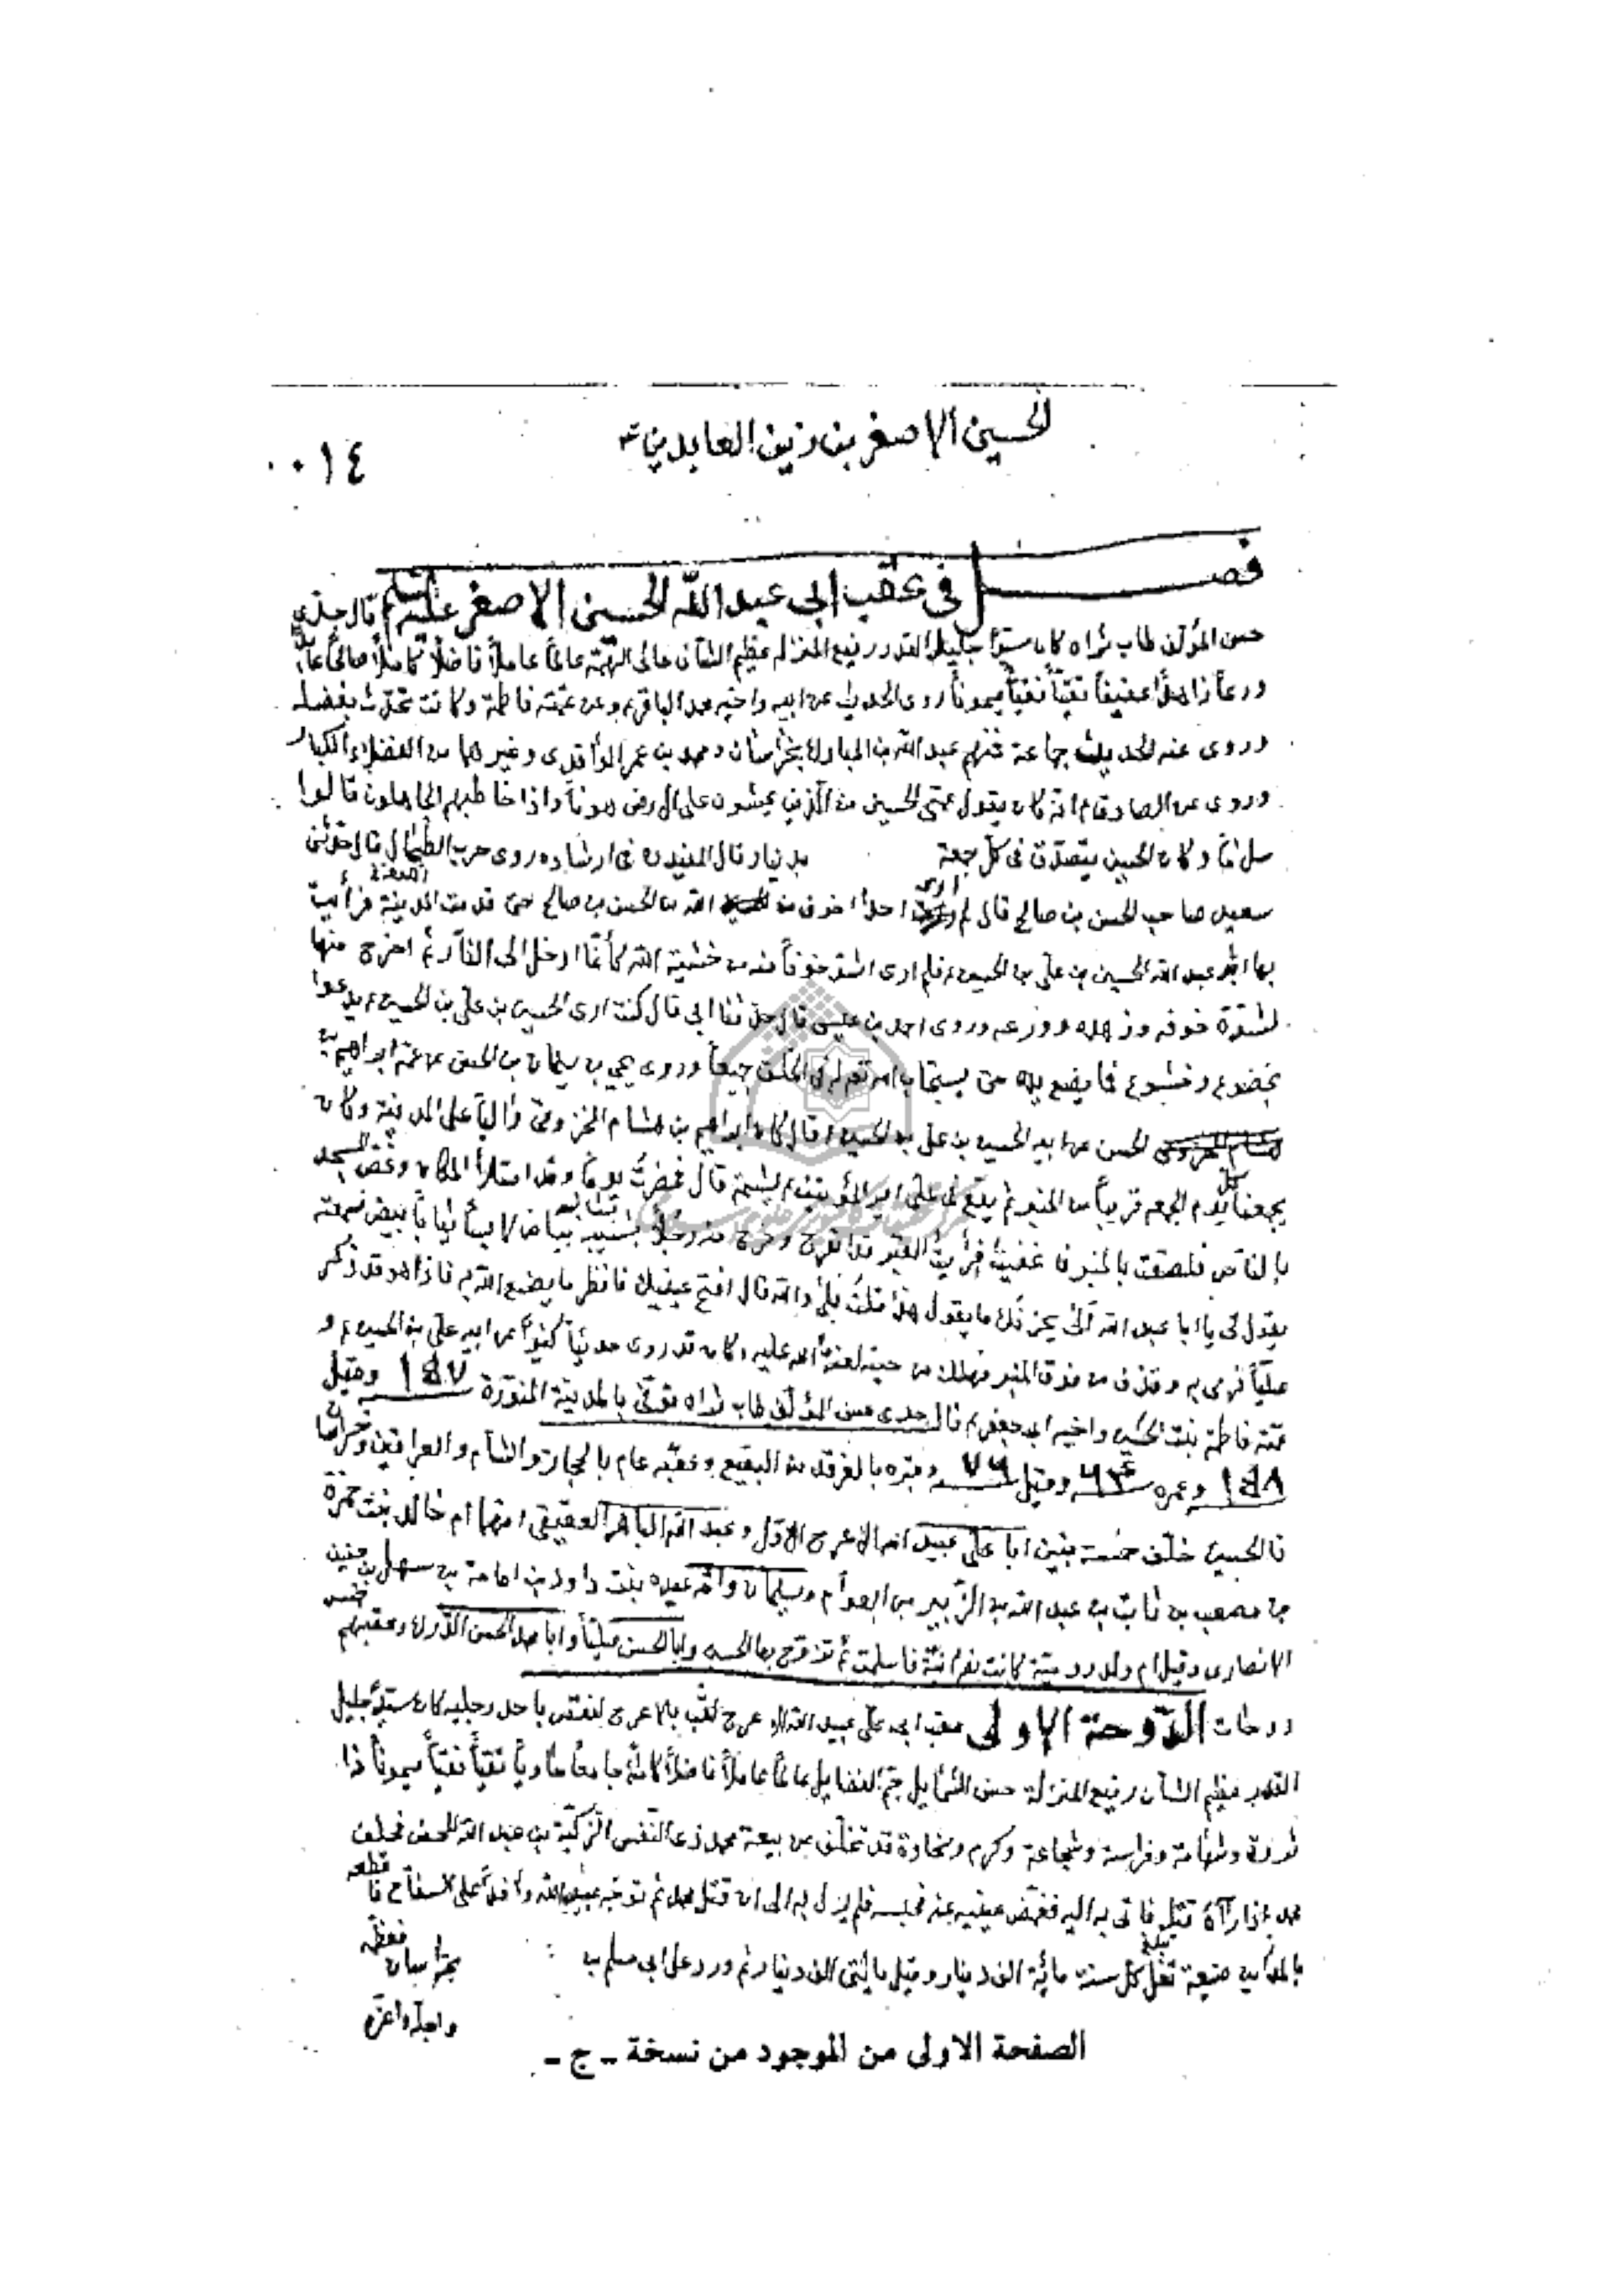 الحسين الاصغر بن زين العابدين ع
٠٠١٤
فصل في عقب ابي عبد الله الحسين الاصغر عليه السلم قال جدي
حسن المؤلف طاب ثراه كان سيدا جليل القدر رفيع المنزله عظيم الشأن عالى الهمة عالماً عاملاً فاضلاً كاملاً صالحاً عابداً
ورعاً زاهداً عفيفاً تقيّاً نقيّاً ميموناً روى الحديث عن ابيه واخيه محمد الباقر ع وعن عمته فاطمة وكانت تحدث بفضله
وروى عنه الحديث جماعة فمنهم عبد الله بن المبارك بخراسان ومحمد بن عمر الواقدى وغيرهما من الفضلاء الكبار
وروى عن الصادق ع انه كان يقول عمى الحسين من الذين يمشون على الارض هوناً واذا خاطبهم الجاهلون قالوا
سلاماً وكان الحسين يتصدق فى كل جمعة بدينار قال المفيد ره فى ارشاده روى حرب الطحال قال حدثنى
سعيد صاحب الحسن بن صالح قال لم ارى احداً اخوف من الله من الحسن بن صالح حتى قدمت المدينة فرأيت
بها ابا عبد الله الحسين بن على بن الحسين ع فلم ارى اشد خوفاً منه من خشية الله كأنما ادخل الى النار ثم اخرج منها
لشدة خوفه وزهده وورعه وروى احمد بن عيسى قال حدثنا ابى قال كنت ارى الحسين بن على بن الحسين ع يدعوا
بخضوع وخشوع فما يضع يده حتى يستجاب له فى الخلق جميعاً وروى يحيى بن سليمان بن الحسن عن عمه ابراهيم بن
الحسن عن ابيه الحسين بن على بن الحسين ع قال كان ابراهيم بن هشام المخزومى والياً على المدينة وكان
يجمعنا كل يوم الجمعه قريباً من المنبر ثم يقع فى على امير المؤمنين ع يشتمه قال فحضرت يوماً وقد امتلأ المكان وغص المسجد
بالناس فلصقت بالمنبر فاغفيت فرأيت القبر قد انفرج وخرج منه رجلاً بياض لابساً ثياباً بيض فسمعته
يقول لى يا ابا عبد الله الا يحزنك ما يقول هذا قلت بلى والله قال افتح عينيك فانظر ما يصنع الله به فاذا هو قد ذكر
علياً فرمى به وقذف من فوق المنبر فهلك من حينه لعنة الله عليه وكان قد روى حديثاً كثيراً عن ابيه على بن الحسين ع و
عمته فاطمة بنت الحسين واخيه ابى جعفر ع قال جدى حسن المؤلف طاب ثراه توفى بالمدينة المنورة ١٥٧ وقيل
١٥٨ وعمره ٦٤ وقيل ٧٦ وقبره بالغرقد من البقيع وعقبه عام بالحجاز والشام والعراقين وخراسان
فالحسين خلف خمسة بنين ابا على عبيد الله الاعرج الاول وعبد الله الباهر العقيقى امهما ام خالد بنت حمزة
بن مصعب بن ثابت بن عبد الله بن الزبير بن العوام وسليمان وامه عبده بنت داود بن امامة بن سهل بن حنيف
الانصارى وقيل ام ولد رومية كانت نصرانية فاسلمت ثم تزوج بها الحسين وابا الحسن علياً وابا محمد الحسن الدكة وعقبهم خمس
دوحات الدوحة الاولى عقب ابى على عبيد الله الاعرج لقب بالاعرج لنقص باحد رجليه كان سيداً جليل
القدر عظيم الشأن رفيع المنزلة حسن الشمائل جم الفضايل عالماً عاملاً فاضلاً كاملاً جامعاً حاوياً تقياً نقياً ميموناً ذا
ثروة وشهامة وفراسة وشجاعة وكرم وسخاوة قد تخلف من بيعة محمد ذى النفس الزكية بن عبد الله المحض فحلف
محمد اذا رآه قتله فاتى به اليه فغمض عينيه عنه فحبسه فلم يزل به الى ان قتل محمد ثم توجه عبيد الله وافداً على السفاح فاقطعه
بالمداين ضيعة تغل كل سنة مائة الف دينار وقيل مائتى الف دينار ثم ورد على ابى مسلم بخراسان فعظمه
واجله واعزه
الصفحة الاولى من الموجود من نسخة - ج -